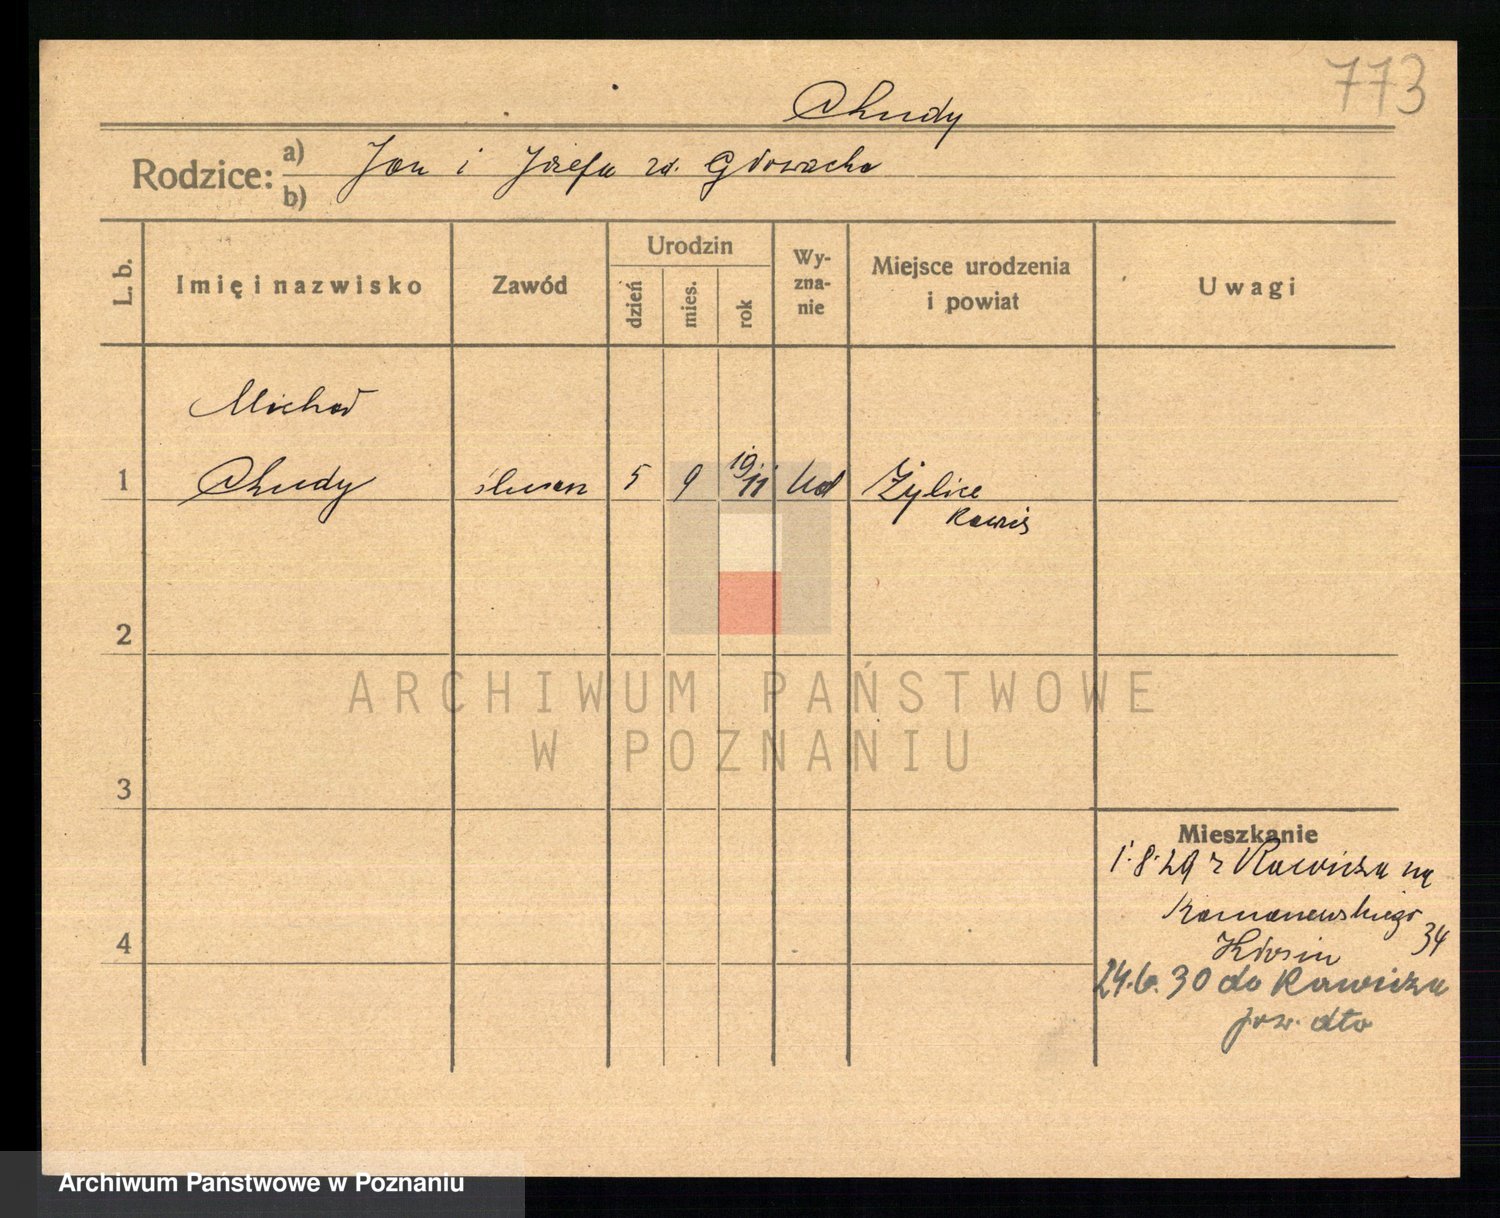 773
Chudy
Rodzice: a) Jan i Józefa zd. Głowacka
b)
L. b. Imię i nazwisko Zawód Urodzin dzień mies. rok Wyznanie Miejsce urodzenia i powiat Uwagi
Michał
1 Chudy ślusarz 5 9 19.11 kat Żylice
Rawicz
2
ARCHIWUM PAŃSTWOWE
W POZNANIU
3
Mieszkanie
1.8.29 z Rawicza na
34
4
24.6.30 do Rawicza
pow. dto
Archiwum Państwowe w Poznaniu